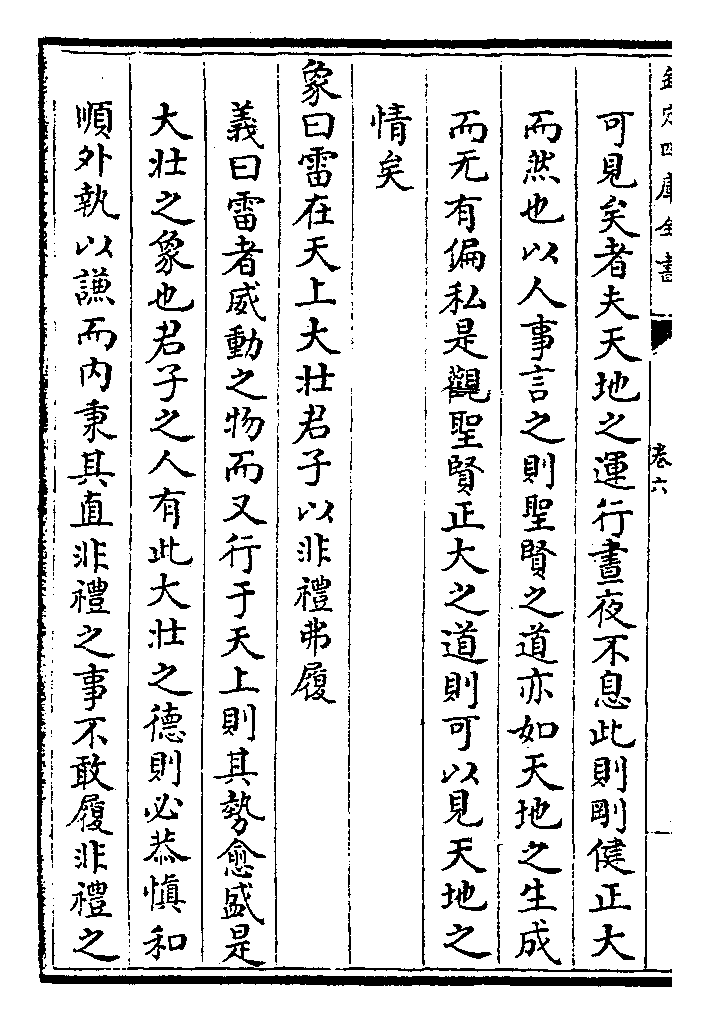 欽定四庫全書
卷六
可見矣者夫天地之運行晝夜不息此則剛健正大
而然也以人事言之則聖賢之道亦如天地之生成
而无有偏私是觀聖賢正大之道則可以見天地之
情矣
象曰雷在天上大壯君子以非禮弗履
義曰雷者威動之物而又行于天上則其勢愈盛是
大壯之象也君子之人有此大壯之德則必恭慎和
順外執以謙而内秉其直非禮之事不敢履非禮之